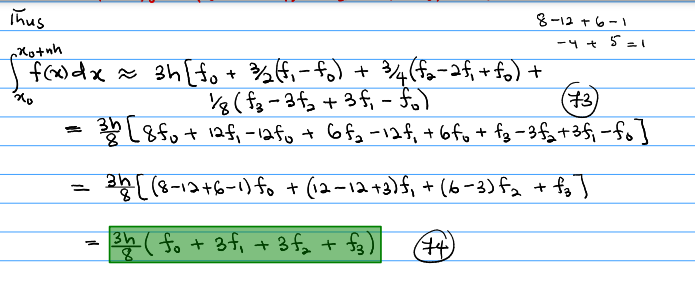 Thus
8-12+6-1
-4 + 5 = 1
∫_{x₀}^{x₀+nh} f(x)dx ≈ 3h[f₀ + 3/2(f₁-f₀) + 3/4(f₂-2f₁+f₀) +
1/8(f₃-3f₂+3f₁-f₀) (73)
= 3h/8 [8f₀ + 12f₁-12f₀ + 6f₂-12f₁+6f₀ + f₃-3f₂+3f₁-f₀]
= 3h/8 [(8-12+6-1)f₀ + (12-12+3)f₁ + (6-3)f₂ + f₃]
= 3h/8 (f₀ + 3f₁ + 3f₂ + f₃) (74)